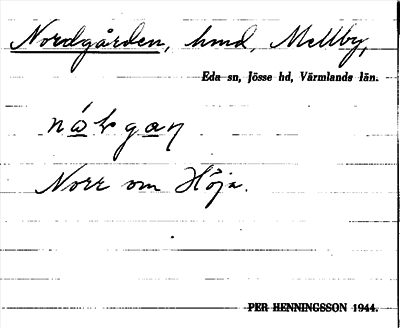 Nordgården, hmd, Mellby,
Eda sn, Jösse hd, Värmlands län.
Norr om Höja.
PER HENNINGSSON 1944.